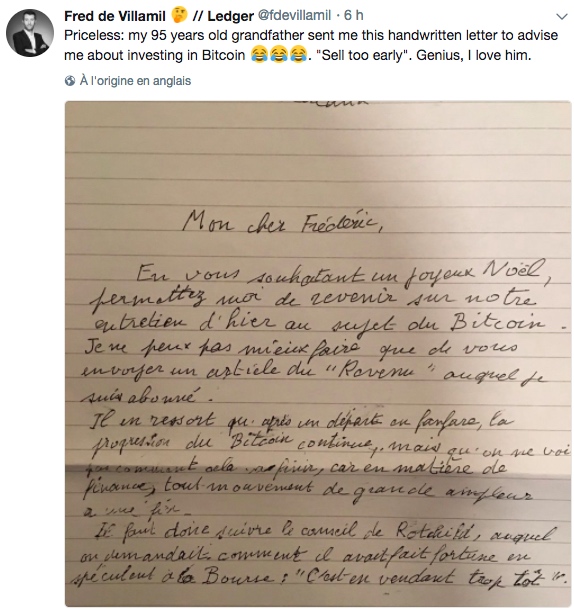 Fred de Villamil 🤔 // Ledger @fdevillamil · 6 h
Priceless: my 95 years old grandfather sent me this handwritten letter to advise
me about investing in Bitcoin 😂😂😂. "Sell too early". Genius, I love him.
À l'origine en anglais
Mon cher Frédéric,
En vous souhaitant un joyeux Noël,
permettez moi de revenir sur notre
entretien d'hier au sujet du Bitcoin.
Je ne peux pas mieux faire que de vous
envoyer un article du "Revenu" auquel je
suis abonné.
Il en ressort qu'après un départ en fanfare, la
progression du Bitcoin continue, mais qu'on ne voi
pas comment cela finir, car en matière de
finance, tout mouvement de grande ampleur
a une fin.
Il faut donc suivre le conseil de Rotchild, auquel
on demandait comment il avait fait fortune en
spéculent à la Bourse : "C'est en vendant trop tôt".